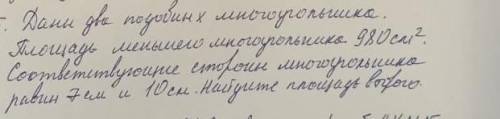 Дани два подобних многоугольника.
Площадь меньшего многоугольника 980 см².
Соответствующие сторони многоугольника
равни 7 см и 10 см. Найдите площадь второго.